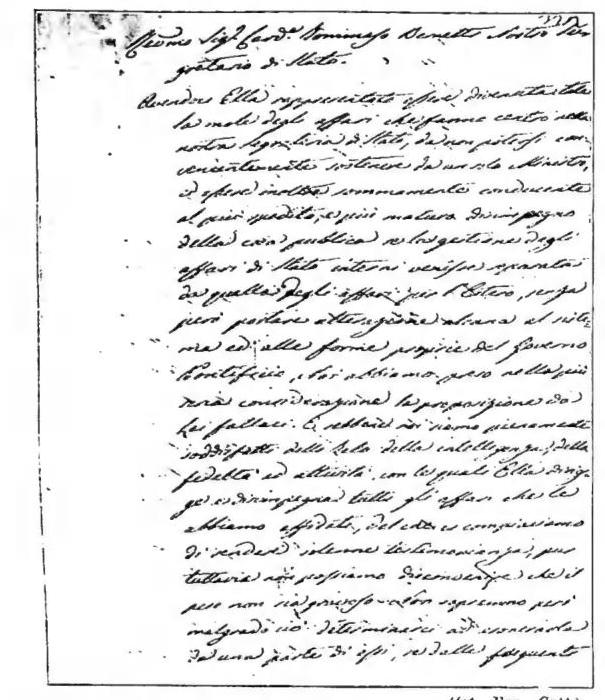 Rev̄mo Sig.r Card.e Tommaso Bernetti Nostro Se-
gretario di Stato.
Avendoci Ella rappresentato essere divenuta tale
la mole degli affari che fanno centro nella
nostra Segreteria di Stato, da non potersi con-
venientemente sostenere da un solo Ministro,
ed essere inoltre sommamente conducente
al più spedito, e più maturo disimpegno
della cosa pubblica se la gestione degli
affari di Stato interni venisse separata
da quella degli affari per l'Estero, senza
però portare alterazione alcuna al siste-
ma ed alle forme proprie del Governo
Pontificio, Noi abbiamo preso nella più
seria considerazione la proposizione da
Lei fattaci. E sebbene noi siamo pienamente
soddisfatti dello Zelo della intelligenza, della
fedeltà ed attività, con le quali Ella diri-
ge e disimpegna tutti gli affari che le
abbiamo affidato, del che ci compiacciamo
di rendere solenne testimonianza; pur
tuttavia non possiamo disconvenire che il
peso non sia gravoso. Non sapremmo però
malgrado ciò determinarci ad esonerarla
da una parte di essi, se dalle frequenti